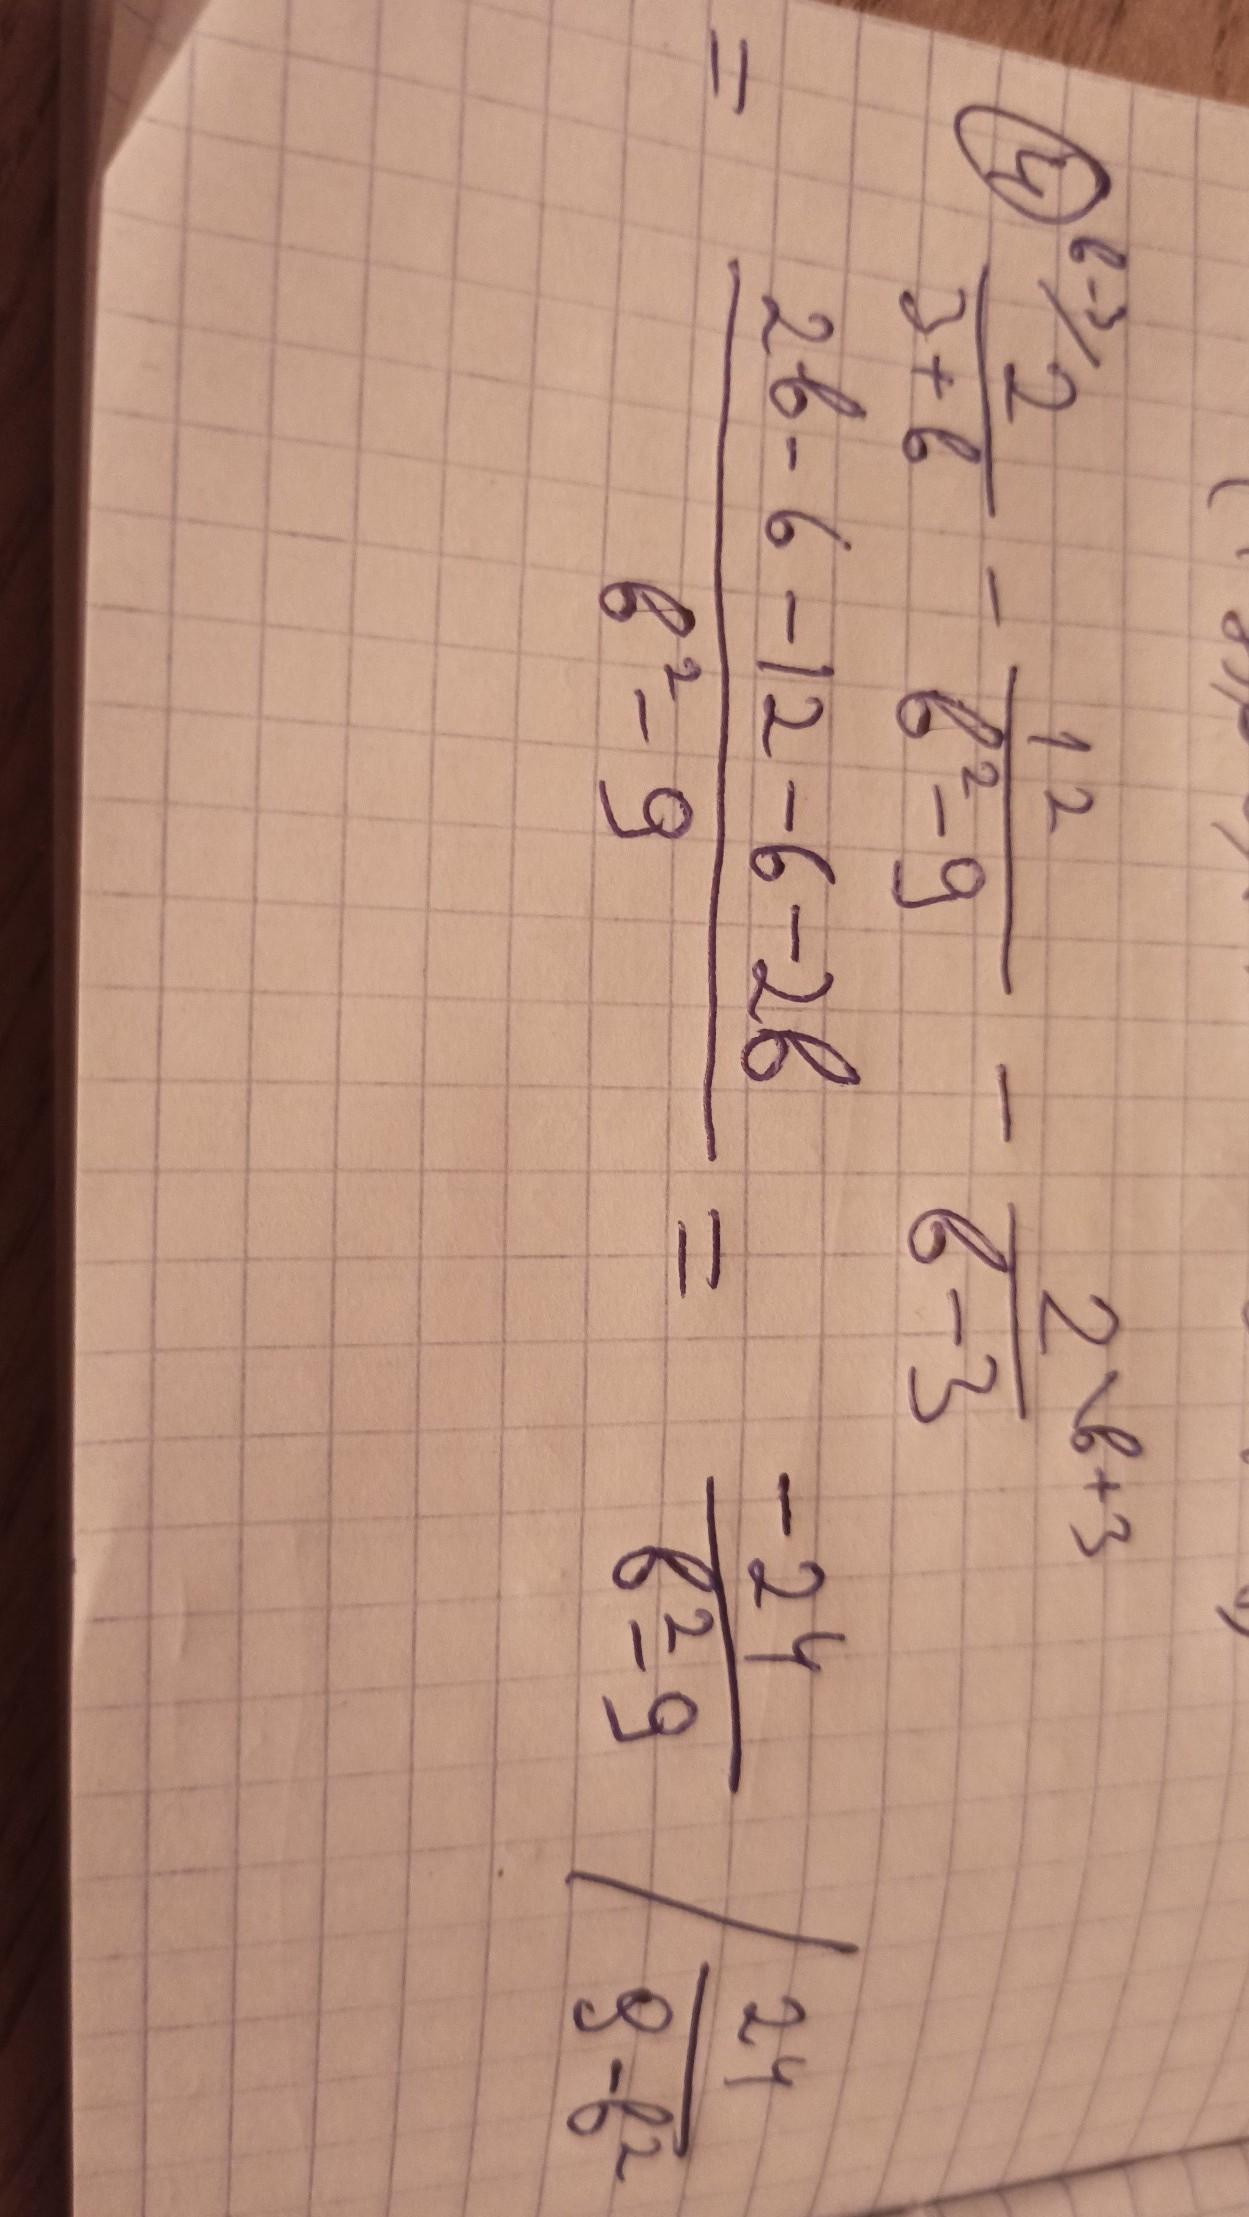 ④ ᵇ⁻³/ 2/(3+b) - 12/(b²-9) - 2/(b-3) \ᵇ⁺³
= (2b-6-12-6-2b)/(b²-9) = -24/(b²-9) / 24/(9-b²)